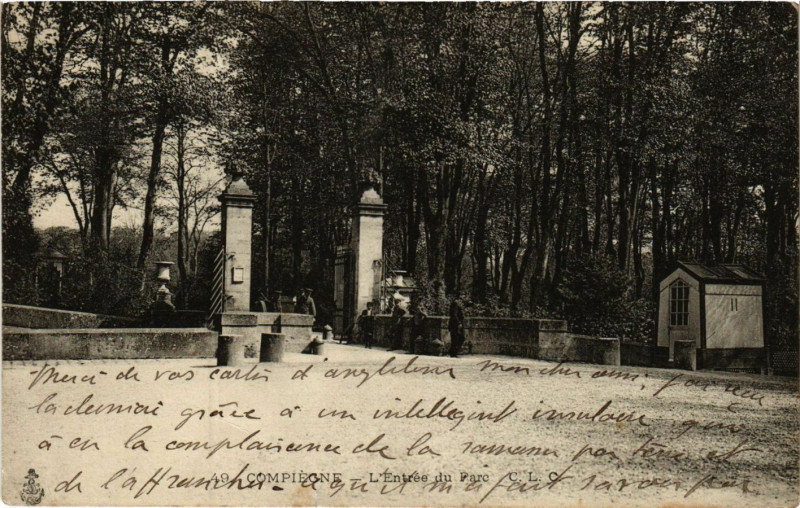 Merci de vos cartes d'angleterre mon cher ami. J'ai reçu
la dernière grâce à un intelligent insulaire qui
a eu la complaisance de la ramasser par terre et
49. COMPIÈGNE - L'Entrée du Parc C. L. C.
de l'affranchir. ce qu'il m'a fait savoir par